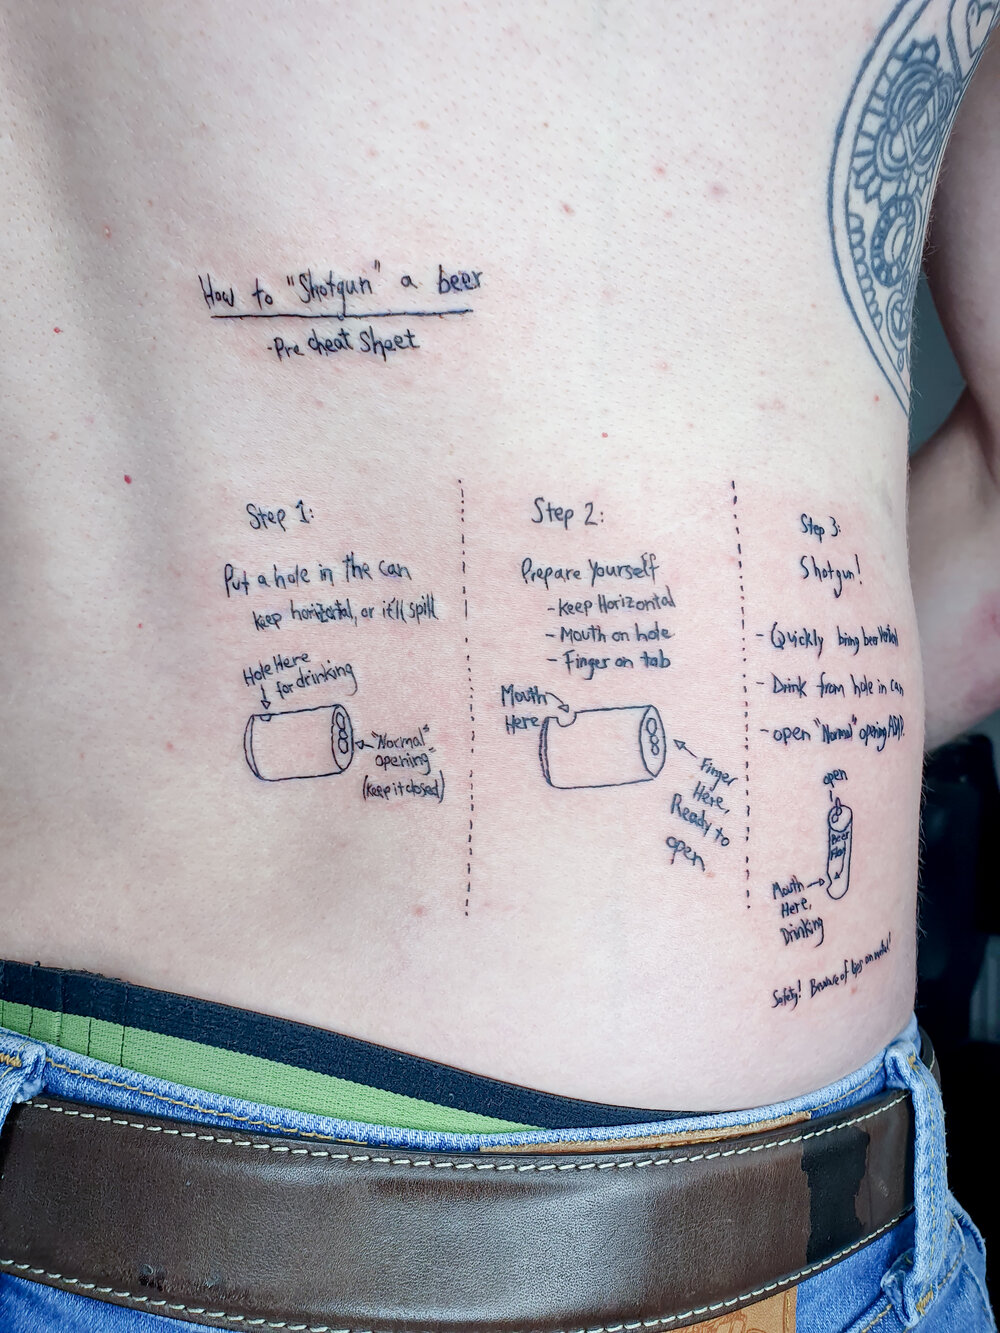 How to "Shotgun" a beer
-Pre cheat Sheet
Step 1:
Put a hole in the can
keep horizontal, or it'll spill
Hole Here
for drinking
"Normal"
opening"
(keep it closed)
Step 2:
Prepare Yourself
-keep Horizontal
- Mouth on hole
- Finger on tab
Mouth
Here
Finger
Here,
Ready to
open
Step 3:
Shotgun!
- Quickly bring beer
- Drink from hole in can
- open "Normal" opening ASAP.
open
Beer
Mouth
Here,
Drinking
Safety! Beware of lips on metal!